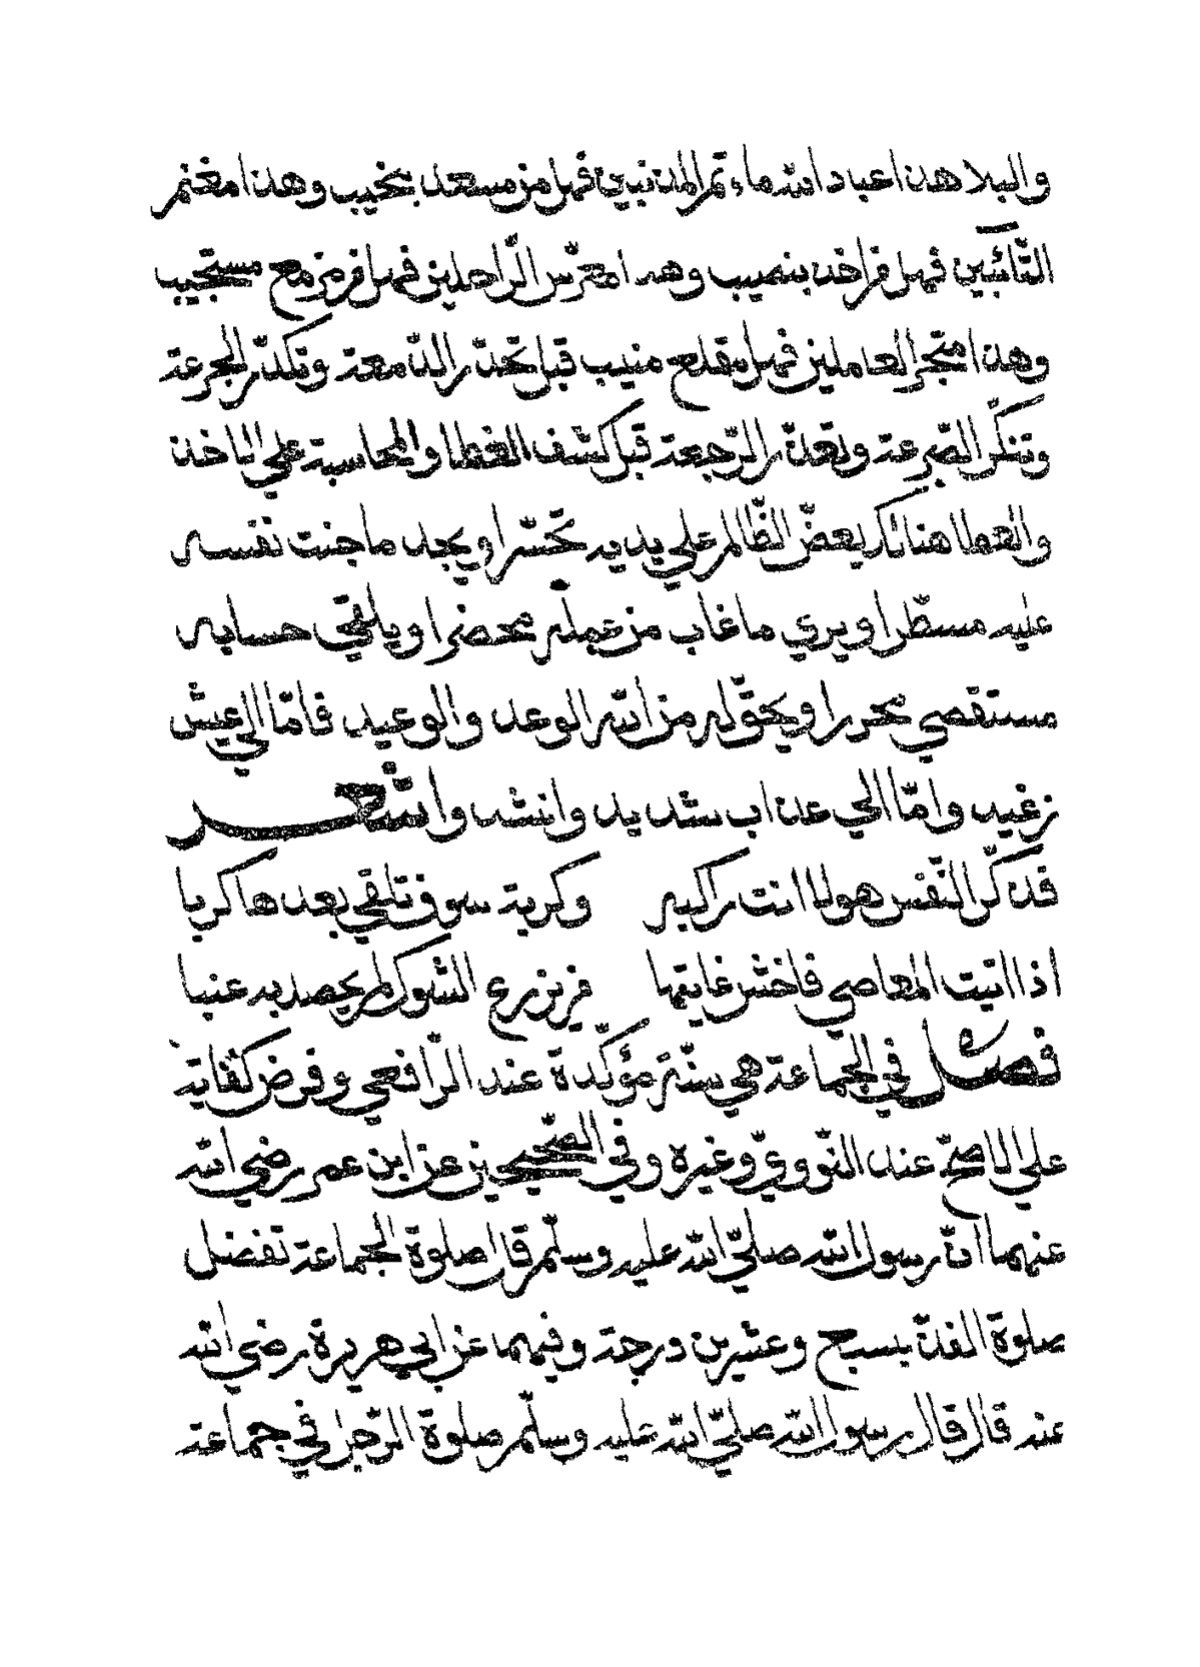 والبلا هذا عباد الله ماءتم المذنبين فهل من مسعد بخيب وهذا مغنم
التّائبين فهل من اخذ بنصيب وهذا معرّس الرّاحلين فهل من من مع مستجيب
وهذا متجر العاملين فهل مقلع منيب قبل تحدّر الدّمعة وتكدّر الجرعة
وتنكّر الصّرعة وتعذّر الرّجعة قبل كشف الغطا والمحاسبة على الاخذ
والعطا هنالك يعضّ الظّالم على يديه تحسّرا ويجد ما جنت نفسه
عليه مسطّرا ويري ما غاب من عمله محضرا ويلقي حسابه
مستقصي محررا ويحقّ له من الله الوعد والوعيد فامّا الي عيش
رغيد وامّا الي عذاب شديد وانشد وا شعر
قد ذكّر النّفس هولا انت راكبه وكربة سوف تلقي بعدها كربا
اذا اتيت المعاصي فاخش غايتها من زرع الشوك لم يحصد به عنبا
فصل في الجّماعة هي سنّة مؤكّدة عند الرّافعي وفرض كفاية
علي الاصحّ عند النّوويّ وغيره وفي الصّحيحين عن ابن عمر رضي الله
عنهما انّ رسول الله صلّي الله عليه وسلّم قال صلوة الجماعة تفضل
صلوة الفذّ بسبع وعشرين درجة وفيهما عن ابي هريرة رضي الله
عنه قال قال رسول الله صلّي الله عليه وسلّم صلوة الرّجل في جماعة